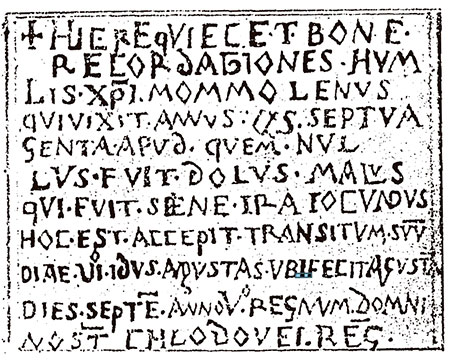 ✝ HIC REQVIECET BONE·
RECORDAGIONES·HVM
LIS·XP̅I·MOMMOLENVS
QVIVIXIT·ANNVS· SEPTVA
GENTA·APVD·QVEM·NVL
LVS·FVIT·DOLVS·MALVS
QVI·FVIT·SIENE·IRA IOCVNDVS
HOC·EST·ACCEPIT·TRANSITVM·SVV̅
DIAE·VI·IDVS·AGVSTAS·VBI FECIT AGVSTA
DIES·SEPTE̅·ANNO V° REGNVM·DOMNI
NOST̅ CHLODOVEI·REG̅·